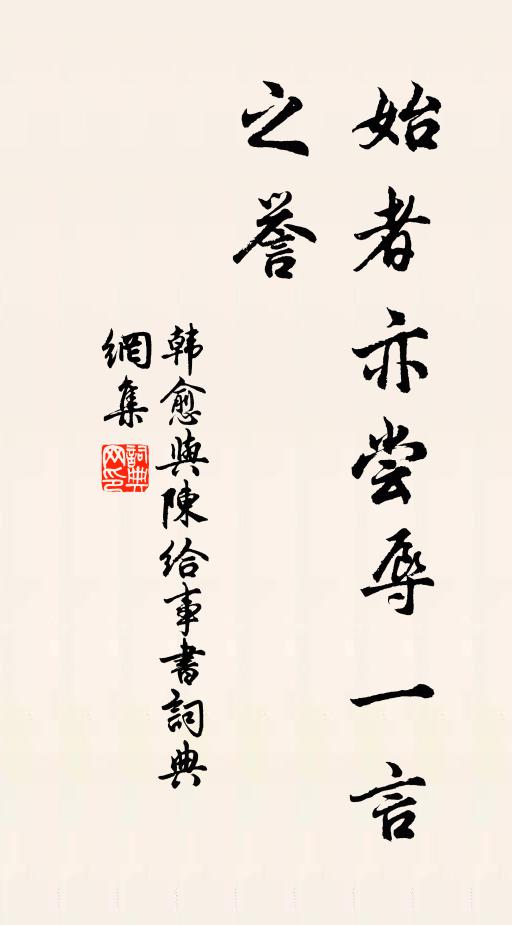 始者亦尝辱一言
之誉
韩愈與陳给事書詞典
網集
詞典
网印